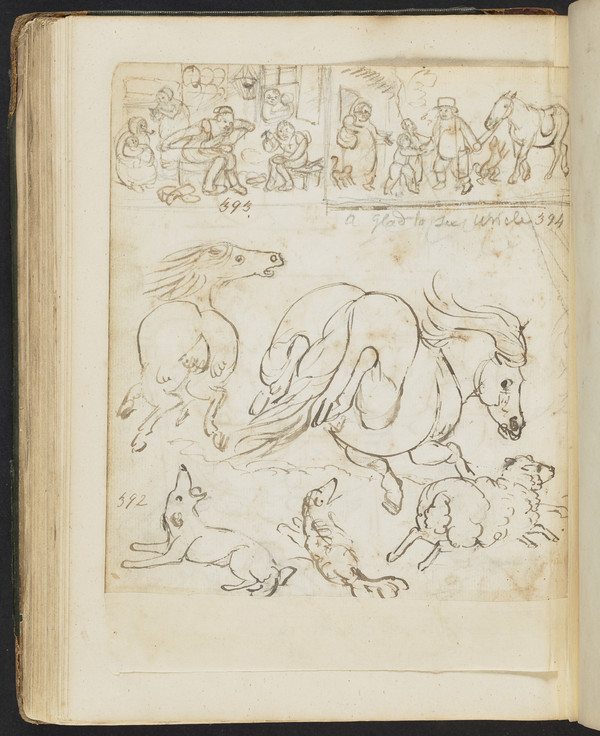 393.
a glad to see Uncle 394
392